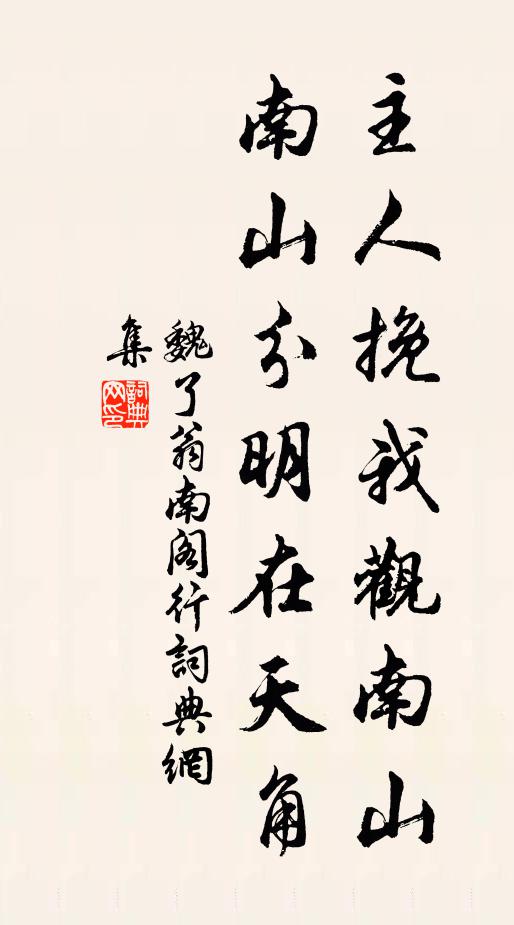 主人挽我觀南山
南山分明在天角
魏了翁南阁行詞典網
集
詞典
网印